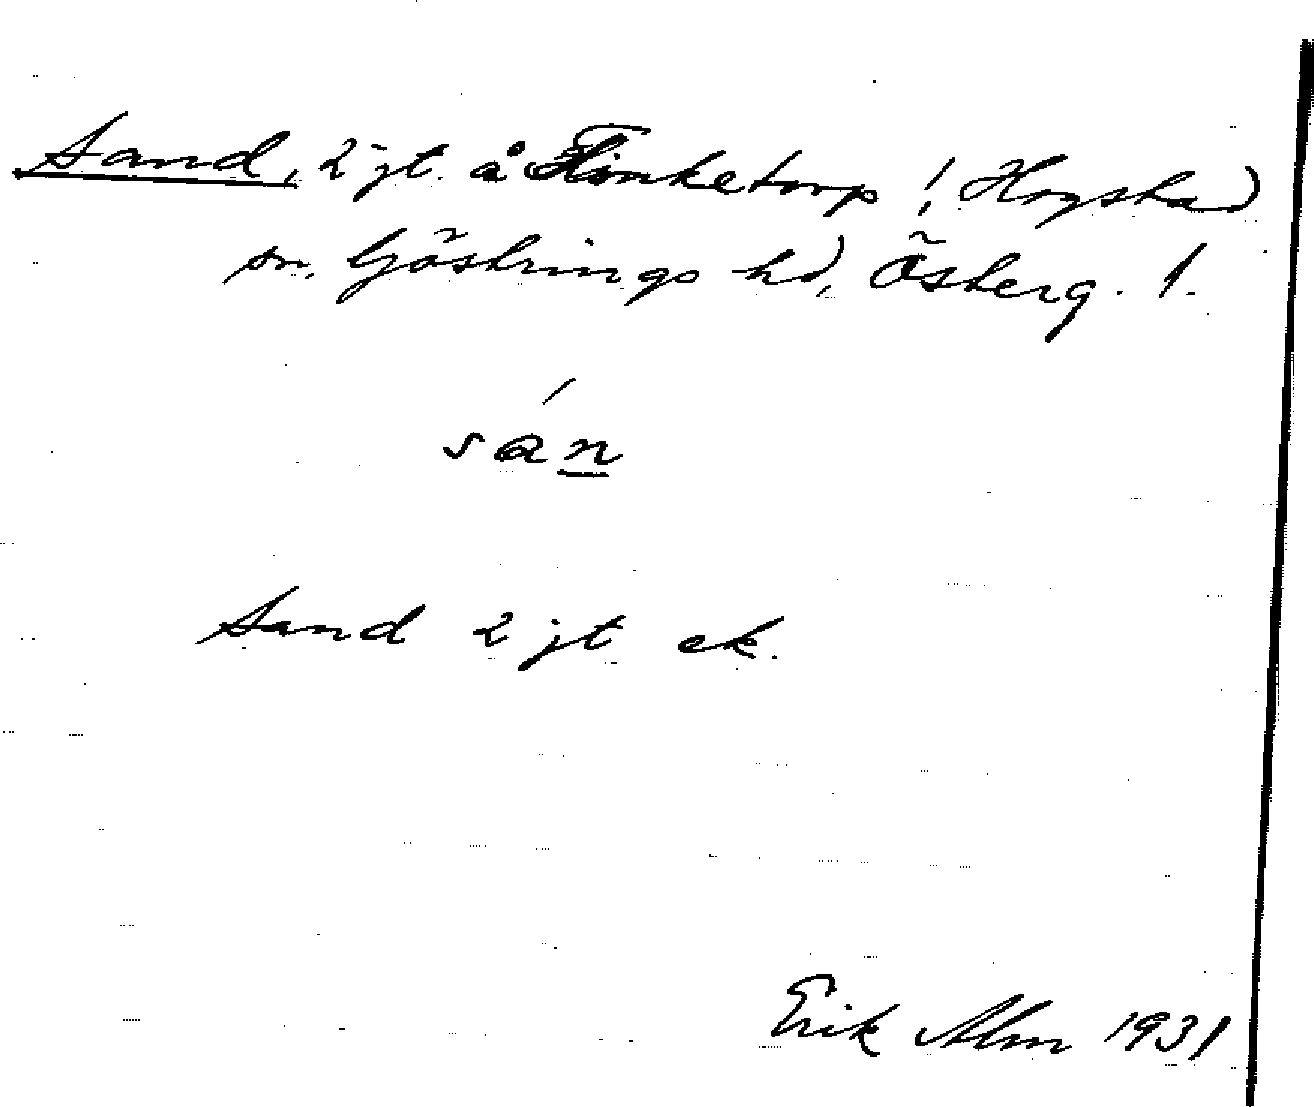 Sand, 2 jt. å Finketorp, Hogstad
sn, Göstrings hd, Österg. l.
sán
Sand 2 jt ek.
Erik Alm 1931